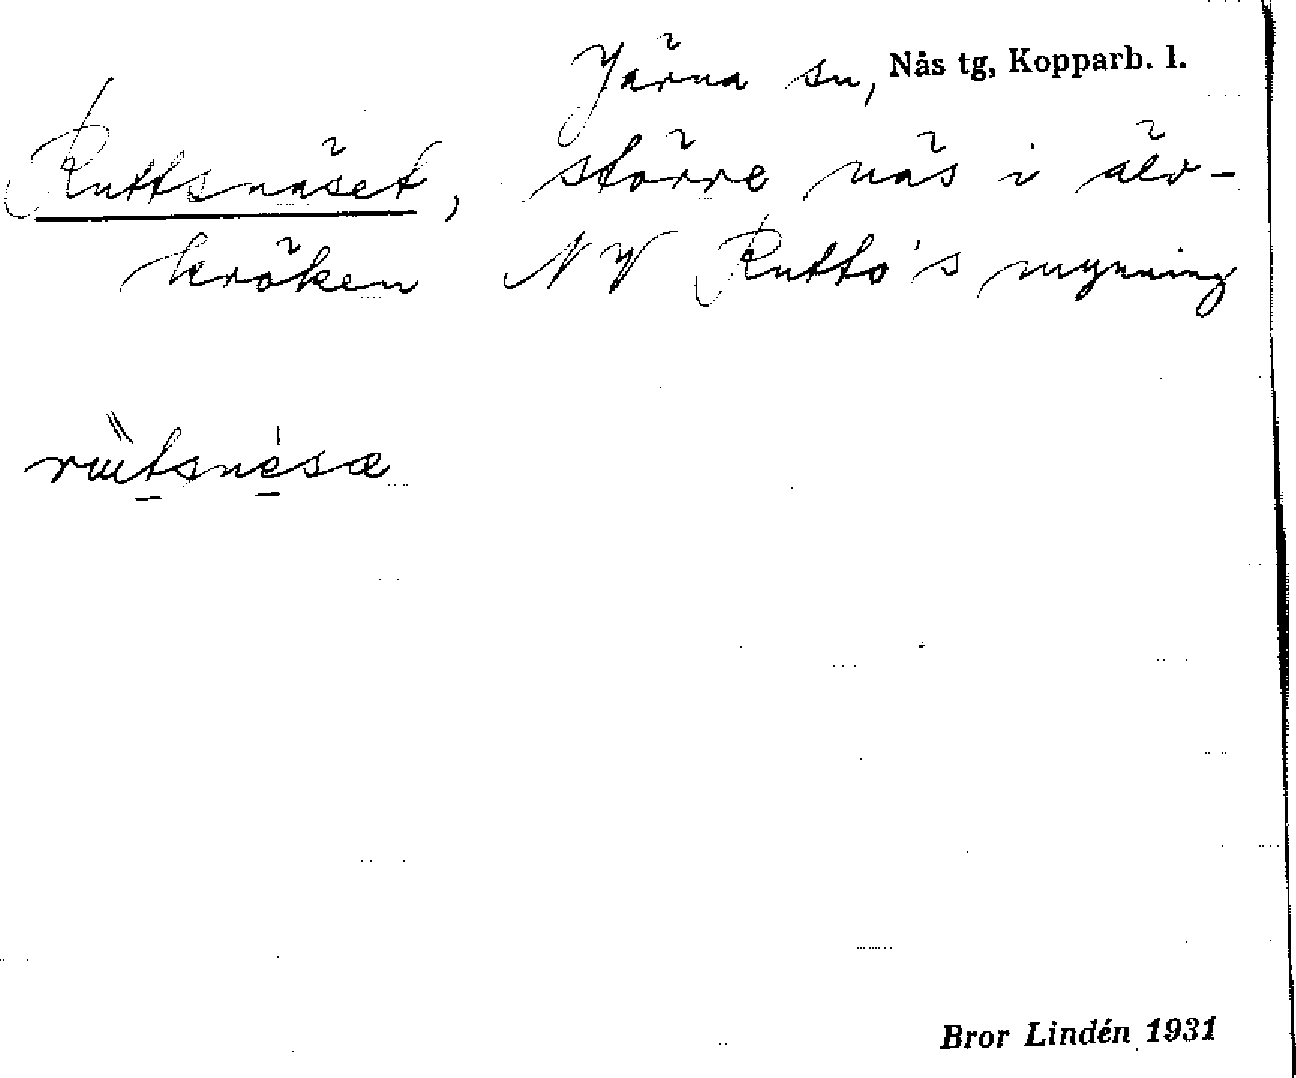 Järna sn, Nås tg, Kopparb. l.
Ruttsnäset, större näs i älv-
kröken NV Rutto's mynning
Bror Lindén 1931